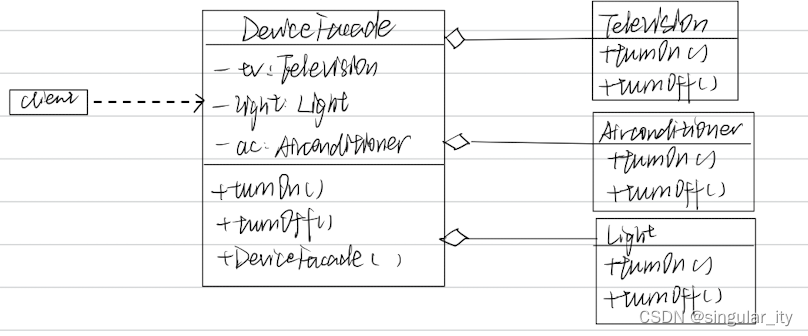 client
DeviceFacade
- tv: Television
- light: Light
- ac: Airconditioner
+turnOn()
+turnOff()
+DeviceFacade()
Television
+turnOn()
+turnOff()
Airconditioner
+turnOn()
+turnOff()
Light
+turnOn()
+turnOff()
CSDN @singular_ity